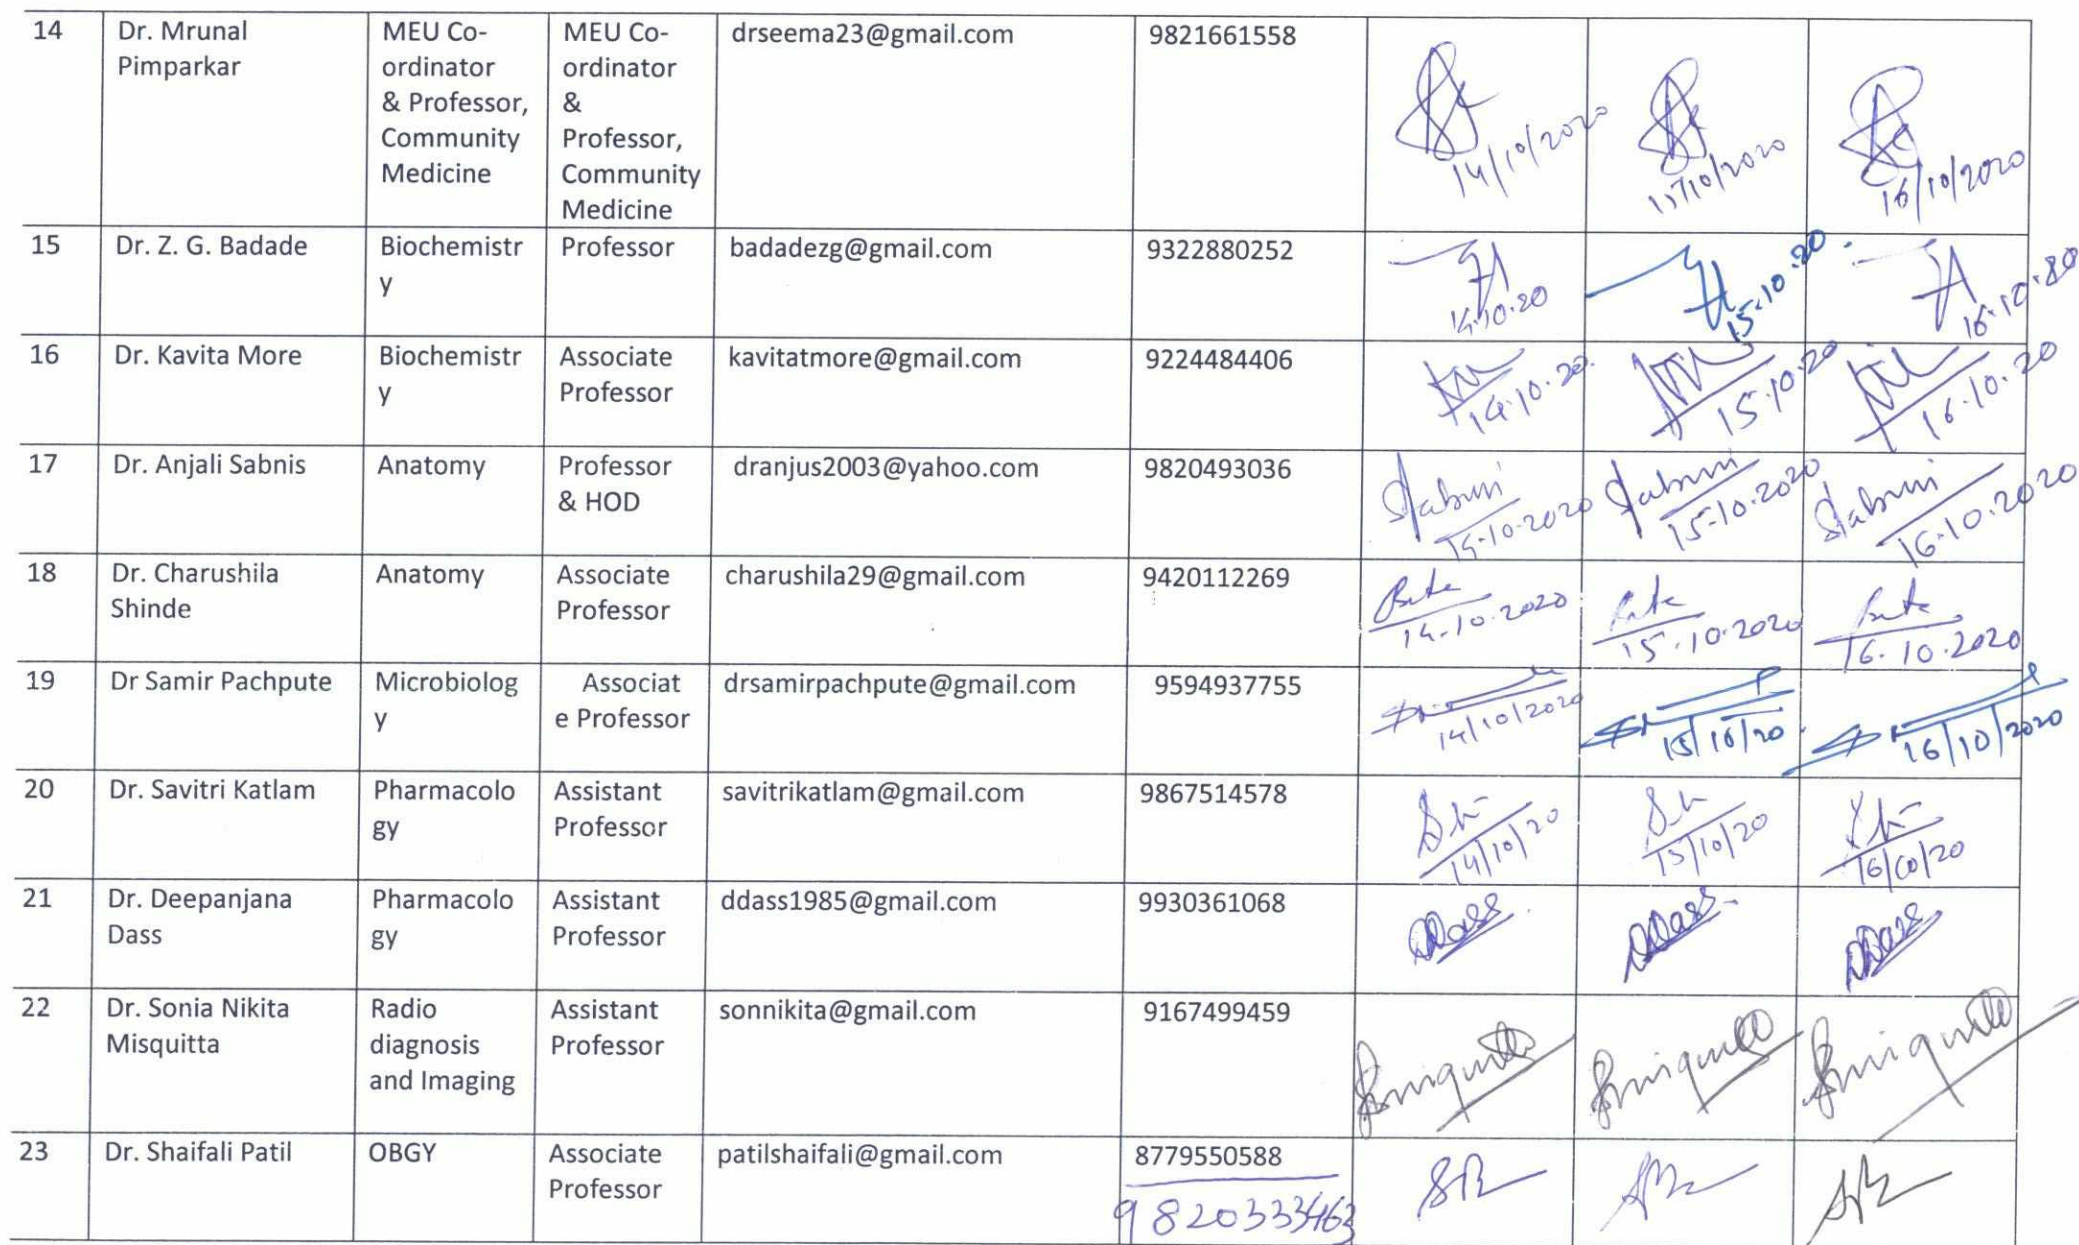 14 Dr. Mrunal Pimparkar MEU Co-ordinator & Professor, Community Medicine MEU Co-ordinator & Professor, Community Medicine drseema23@gmail.com 9821661558 14/10/2020 15/10/2020 16/10/2020
15 Dr. Z. G. Badade Biochemistry Professor badadezg@gmail.com 9322880252 14.10.20 15.10.20 16.10.20
16 Dr. Kavita More Biochemistry Associate Professor kavitatmore@gmail.com 9224484406 14.10.20. 15.10.20 16.10.20
17 Dr. Anjali Sabnis Anatomy Professor & HOD dranjus2003@yahoo.com 9820493036 14-10-2020 15-10-2020 16-10-2020
18 Dr. Charushila Shinde Anatomy Associate Professor charushila29@gmail.com 9420112269 14-10-2020 15-10-2020 16-10-2020
19 Dr Samir Pachpute Microbiology Associate Professor drsamirpachpute@gmail.com 9594937755 14/10/2020 15/10/20 16/10/2020
20 Dr. Savitri Katlam Pharmacology Assistant Professor savitrikatlam@gmail.com 9867514578 14/10/20 15/10/20 16/10/20
21 Dr. Deepanjana Dass Pharmacology Assistant Professor ddass1985@gmail.com 9930361068 DDass DDass DDass
22 Dr. Sonia Nikita Misquitta Radio diagnosis and Imaging Assistant Professor sonnikita@gmail.com 9167499459
23 Dr. Shaifali Patil OBGY Associate Professor patilshaifali@gmail.com 8779550588
9820333463